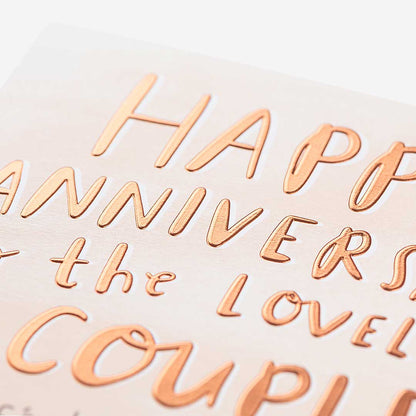 HAPP
ANNIVERS
the LOVEL
COUPL